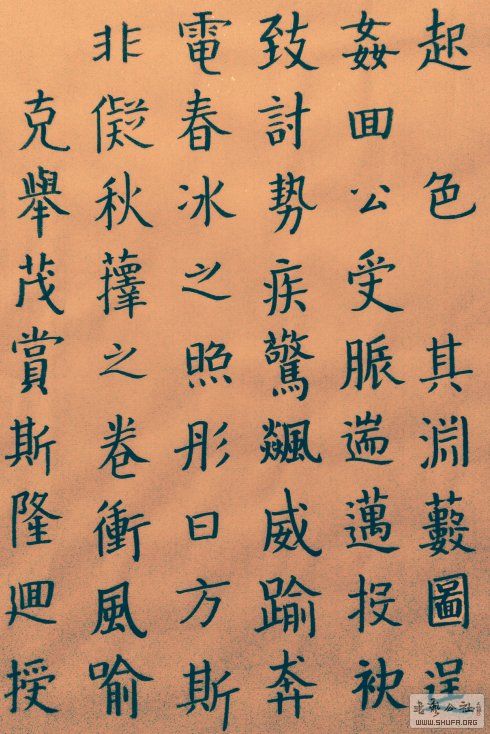 起色其淵藪圖逞
姦囬公受脤遄邁投袂
致討勢疾驚飆威踰奔
電春冰之照彤日方斯
非儗秋蘀之卷衝風喻
克舉茂賞斯隆迴授
書藝公社
WWW.SHUFA.ORG